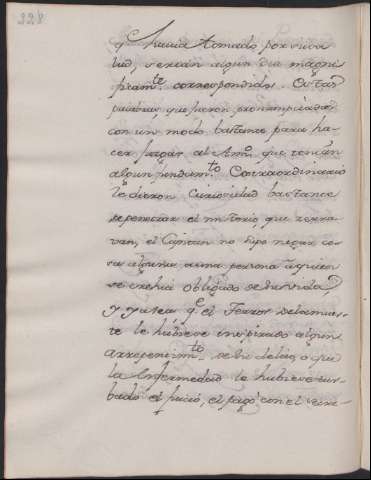 228
q.e havia tomado por su sa
lud, serian algun dia magni
ficam.te correspondidas. Estas
palabras, que fueron pronunciadas
con un modo bastante para ha-
cer juzgar al Amo. que tenian
algun fundam.to Extraordinario
le dieron Curiosidad bastante
de penetrar el misterio que ence rra-
van, el Capitan no supo negar co-
sa alguna a una persona a quien
se crehia obligado de su vida,
y ya sea q.e el Terror de la muer-
te le hubiese inspirado algun
arrepentim.to de su delito, o que
la Enfermedad le hubiese tur-
bado el juicio, el pago con el